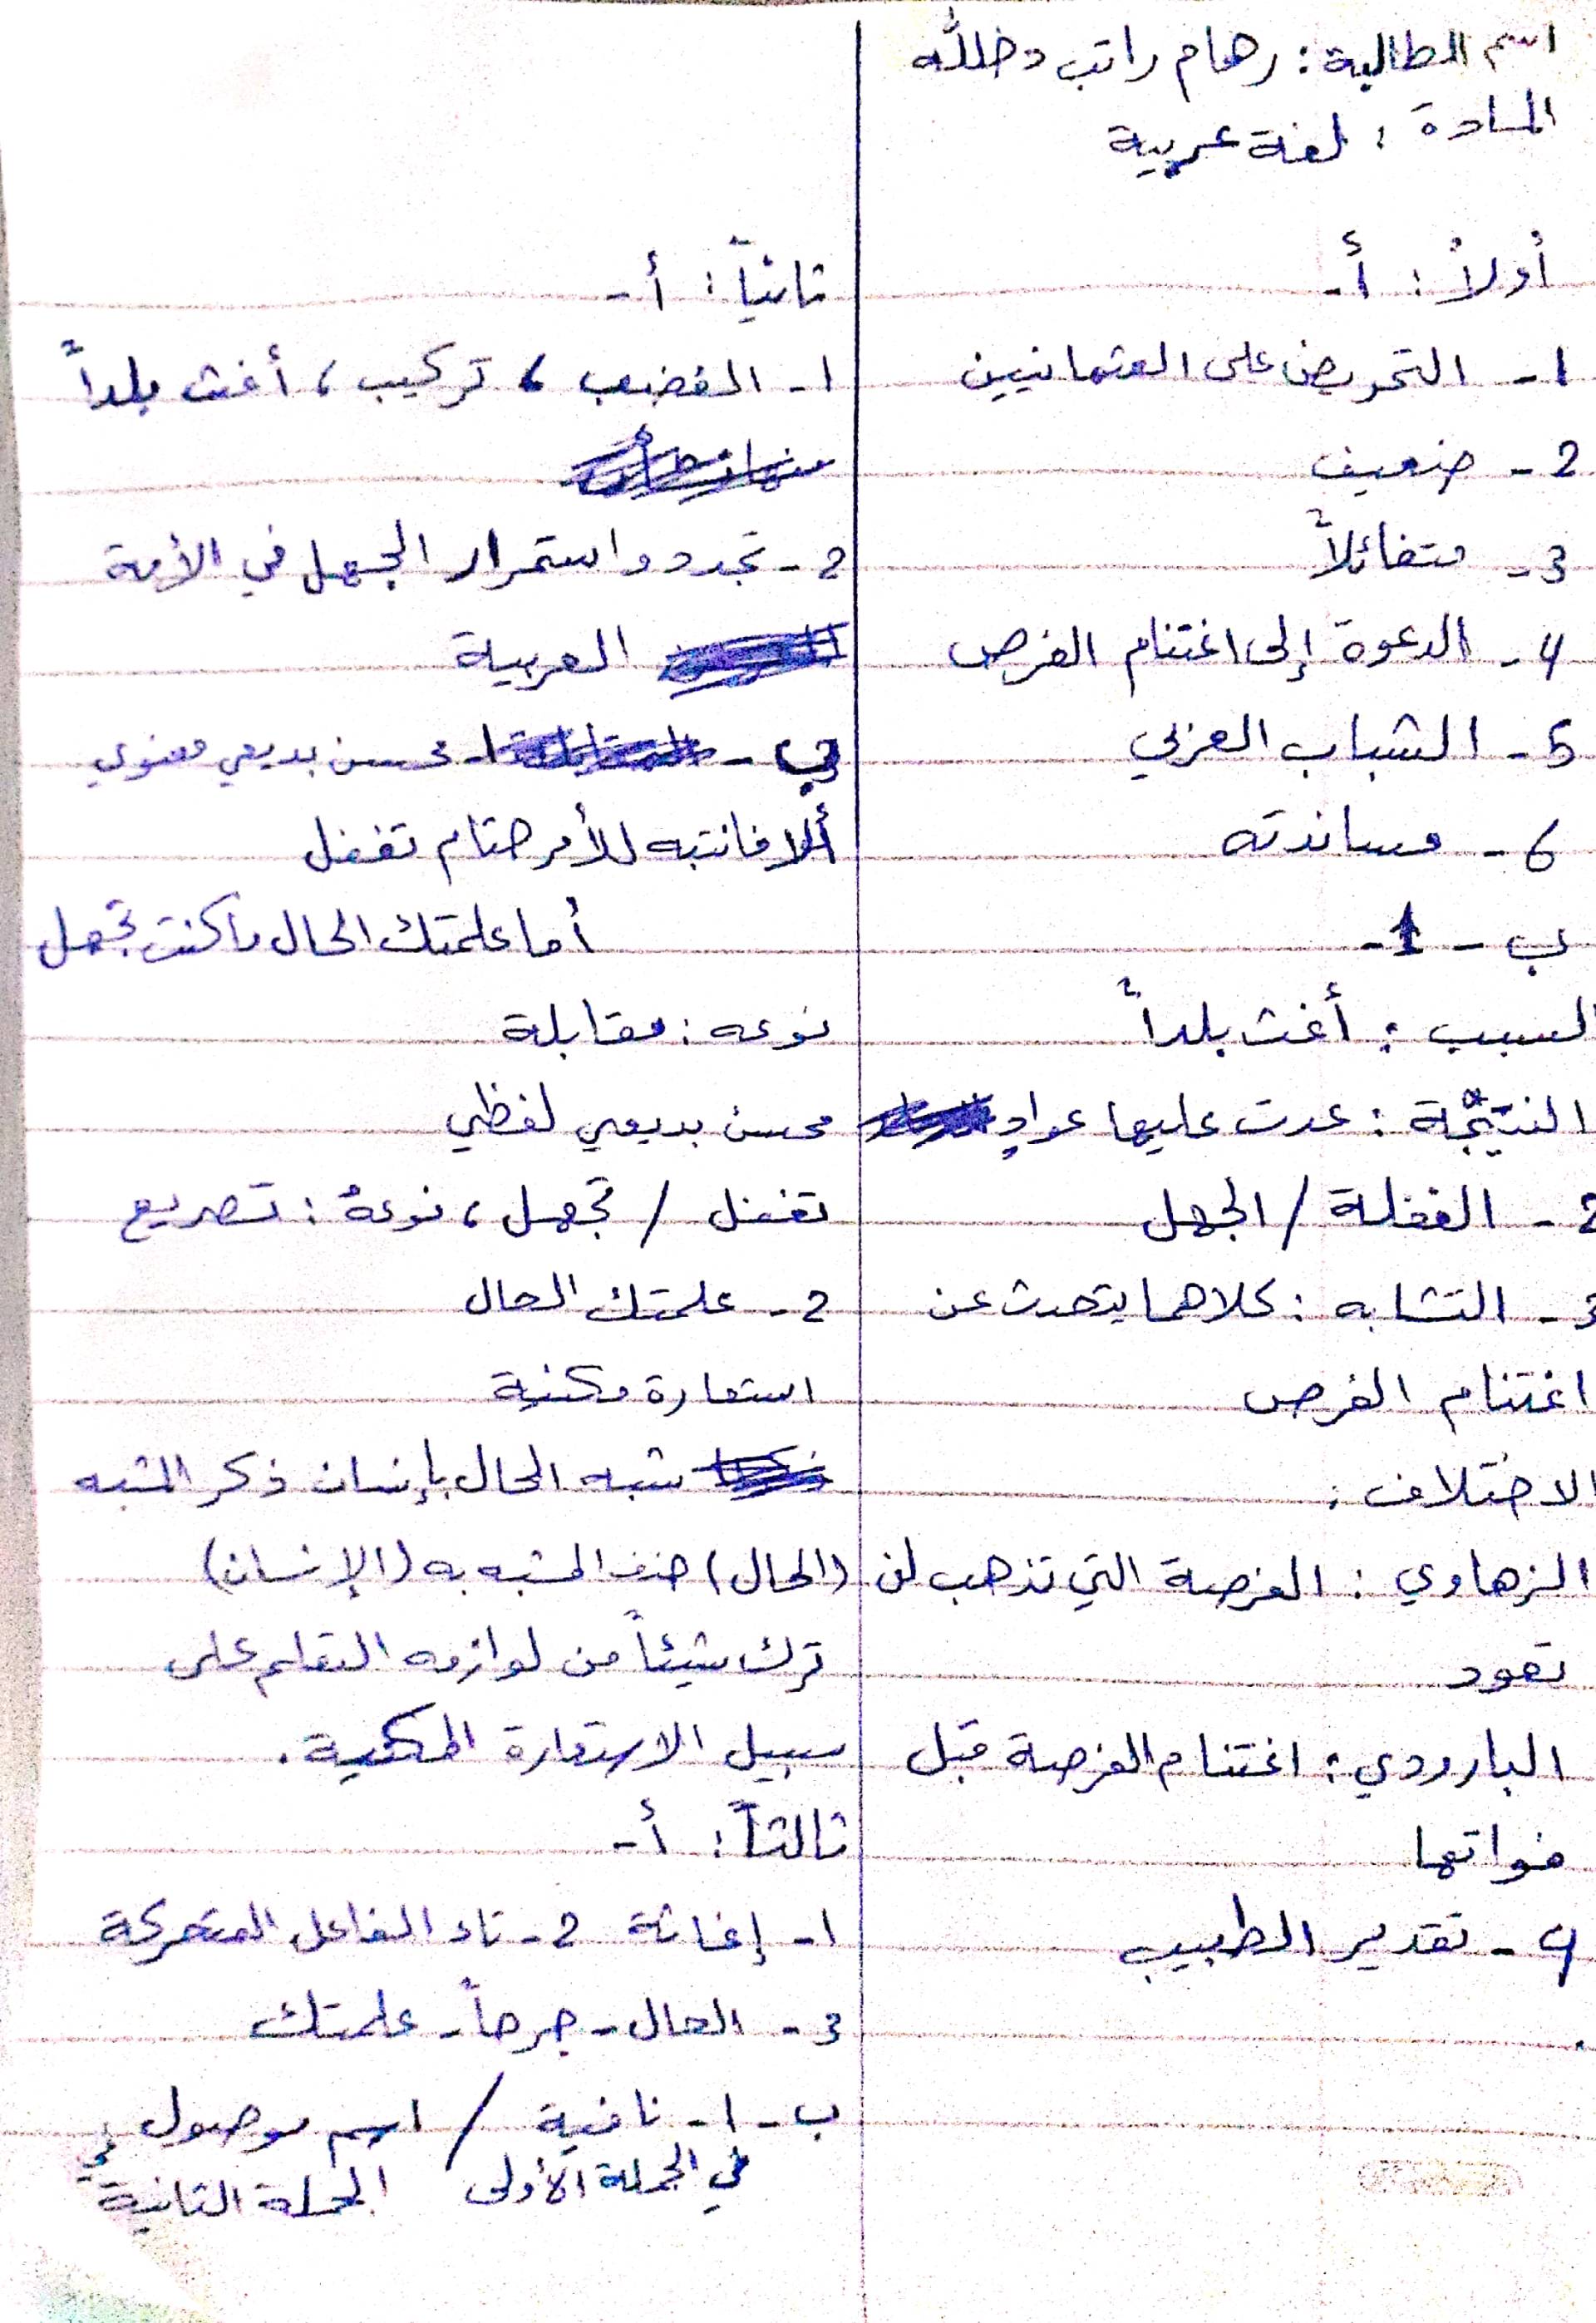 اسم الطالبة: رهام راتب دخالله
المادة: لغة عربية
أولاً: أ-
1- التحريض على العثمانيين
2- ضعيف
3- متفائلاً
4- الدعوة إلى اغتنام الفرص
5- الشباب العربي
6- مساندته
ب - 1-
السبب: أغث بلداً
النتيجة: عدت عليها عوادٍ
2- الغفلة / الجهل
3- التشابه: كلاهما يتحدث عن
اغتنام الفرص
الاختلاف:
الزهاوي: الفرصة التي تذهب لن
تعود
البارودي: اغتنام الفرصة قبل
فواتها
4- تقدير الطبيب
ثانياً: أ-
1- الغضب، تركيب، أغث بلداً
2- تجدد واستمرار الجهل في الأمة
العربية
ب - 1- محسن بديعي معنوي
ألا فانتبه للأمر حتام تغفل
أما علمتك الحال ما كنت تجهل
نوعه: مقابلة
محسن بديعي لفظي
تغفل / تجهل، نوعهُ: تصريع
2- علمتك الحال
استعارة مكنية
شبه الحال بإنسان ذكر المشبه
(الحال) حذف المشبه به (الإنسان)
ترك شيئاً من لوازمه التعلم على
سبيل الاستعارة المكنية.
ثالثاً: أ-
1- إغاثة 2- تاء الفاعل المتحركة
3- الحال - جرحاً - علمتك
ب - 1- نافية / اسم موصول في
في الجملة الأولى الجملة الثانية